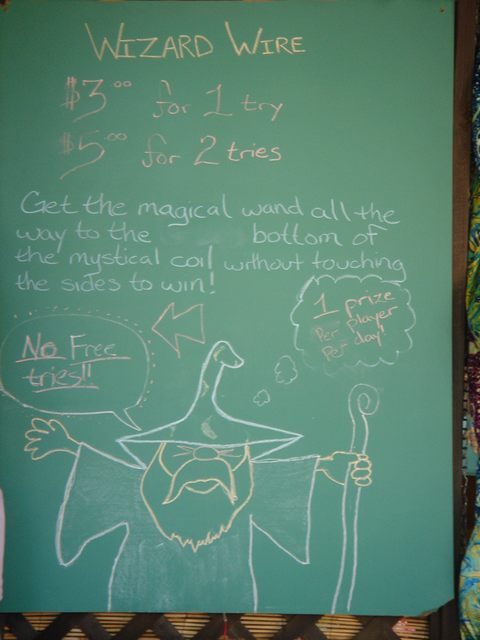 WIZARD WIRE
$3.00 for 1 try
$5.00 for 2 tries
Get the magical wand all the
way to the bottom of
the mystical coil without touching
the sides to win!
1 prize
Per player
Per day!
No Free
tries!!